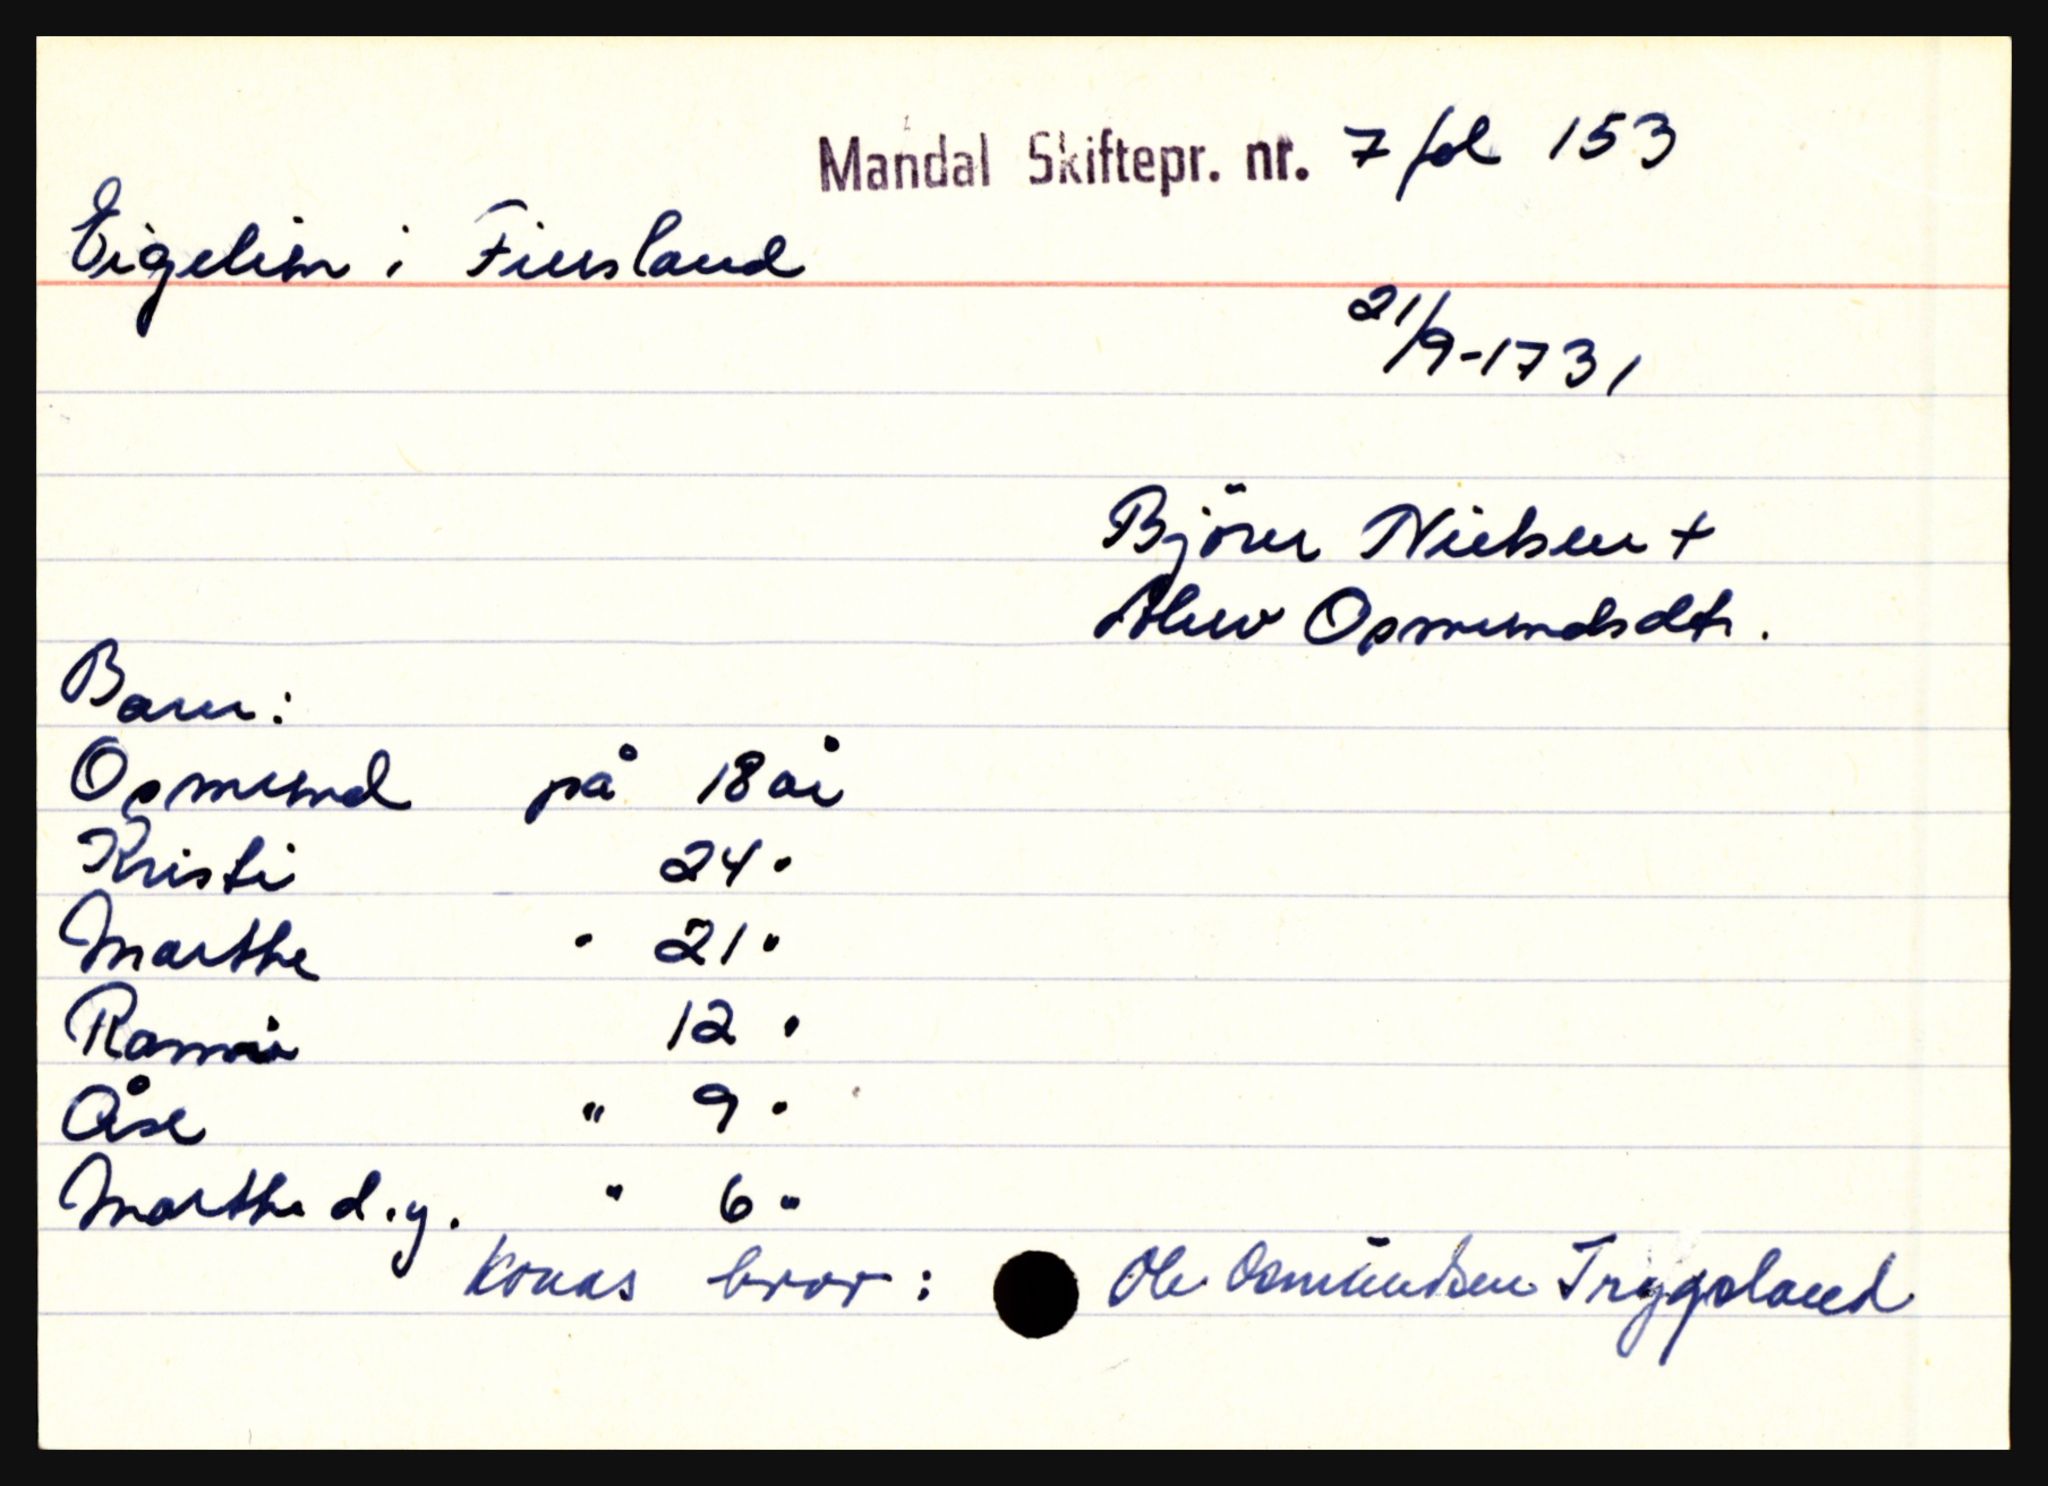 Mandal Skiftepr. nr. 7 fol 153
Eigelim i Finsland
21/9-1731
Björn Nielsen +
Osmundsdtr.
Barn:
Osmund på 18 år
Kristi 24 "
Marthe " 21 "
12 "
Åse " 9 "
Marthe d.y. " 6 "
Konas bror: Ole Osmundsen Trygsland